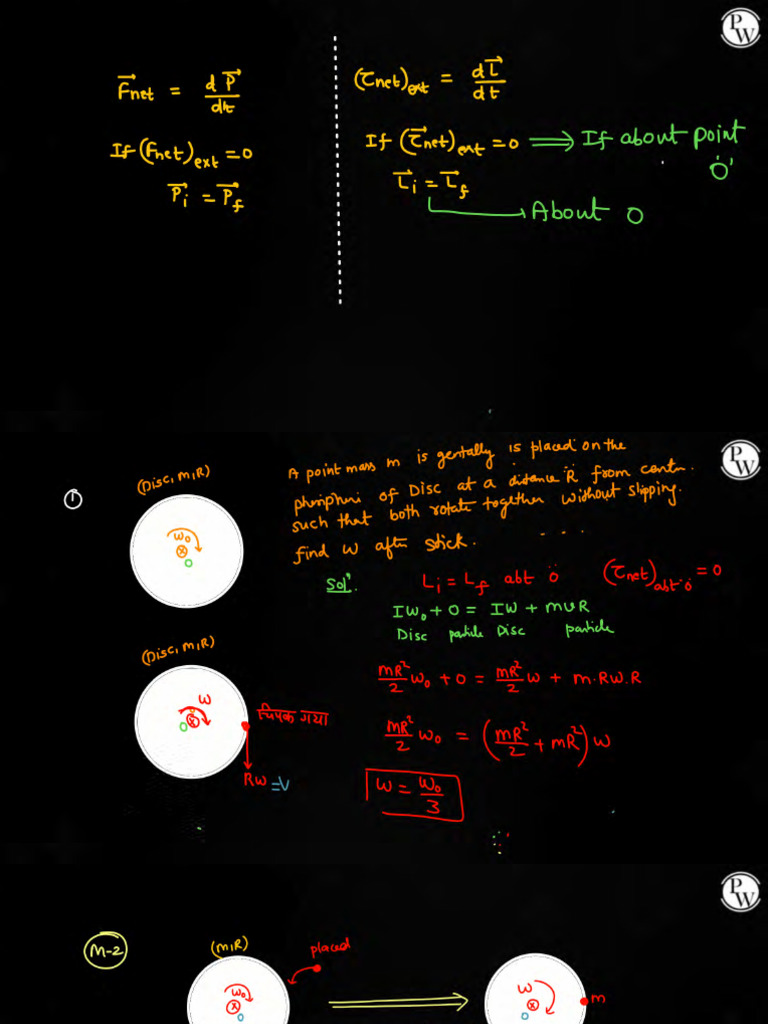 P
W
F⃗net = dP⃗/dt
(τnet)ext = dL⃗/dt
If (Fnet)ext = 0
If (τ⃗net)ext = 0 ⟹ If about point 'O'
P⃗i = P⃗f
L⃗i = L⃗f
About O
P
W
①
(Disc, m,R)
ω₀
O
A point mass m is gentally is placed on the
pheripheri of Disc at a distance R from centr.
such that both rotate together without slipping.
find ω after stick. ....
Solⁿ.
Li = Lf abt 'O' (τnet)abt 'O' = 0
Iω₀ + 0 = Iω + mvR
Disc particle Disc particle
(Disc, m,R)
ω
O
चिपक गया
Rω = V
mR²/2 ω₀ + 0 = mR²/2 ω + m·Rω·R
mR²/2 ω₀ = (mR²/2 + mR²) ω
ω = ω₀/3
P
W
M-2
(m,R)
placed
ω₀
O
ω
O
m